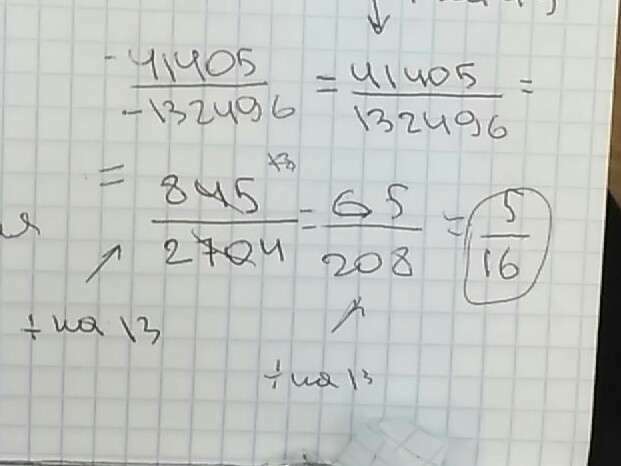 -41405/-132496 = 41405/132496 =
= 845/2704 = 65/208 = 5/16
÷ на 13
÷ на 13